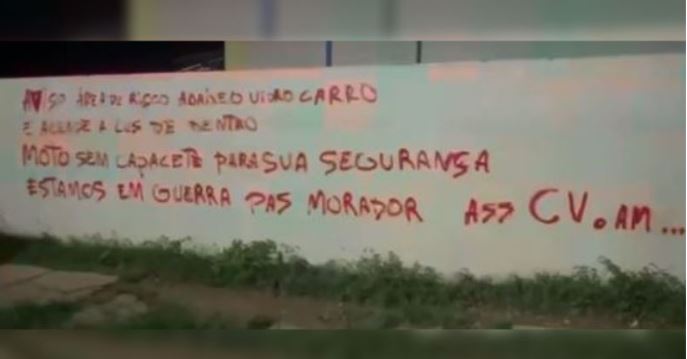 AVISO ÁREA DE RISCO ABAIXEO VIDRO CARRO
E ACENDE A LUS DE DENTRO
MOTO SEM CAPACETE PARA SUA SEGURANSA
ESTAMOS EM GUERRA PAS MORADOR ASS CV.AM...